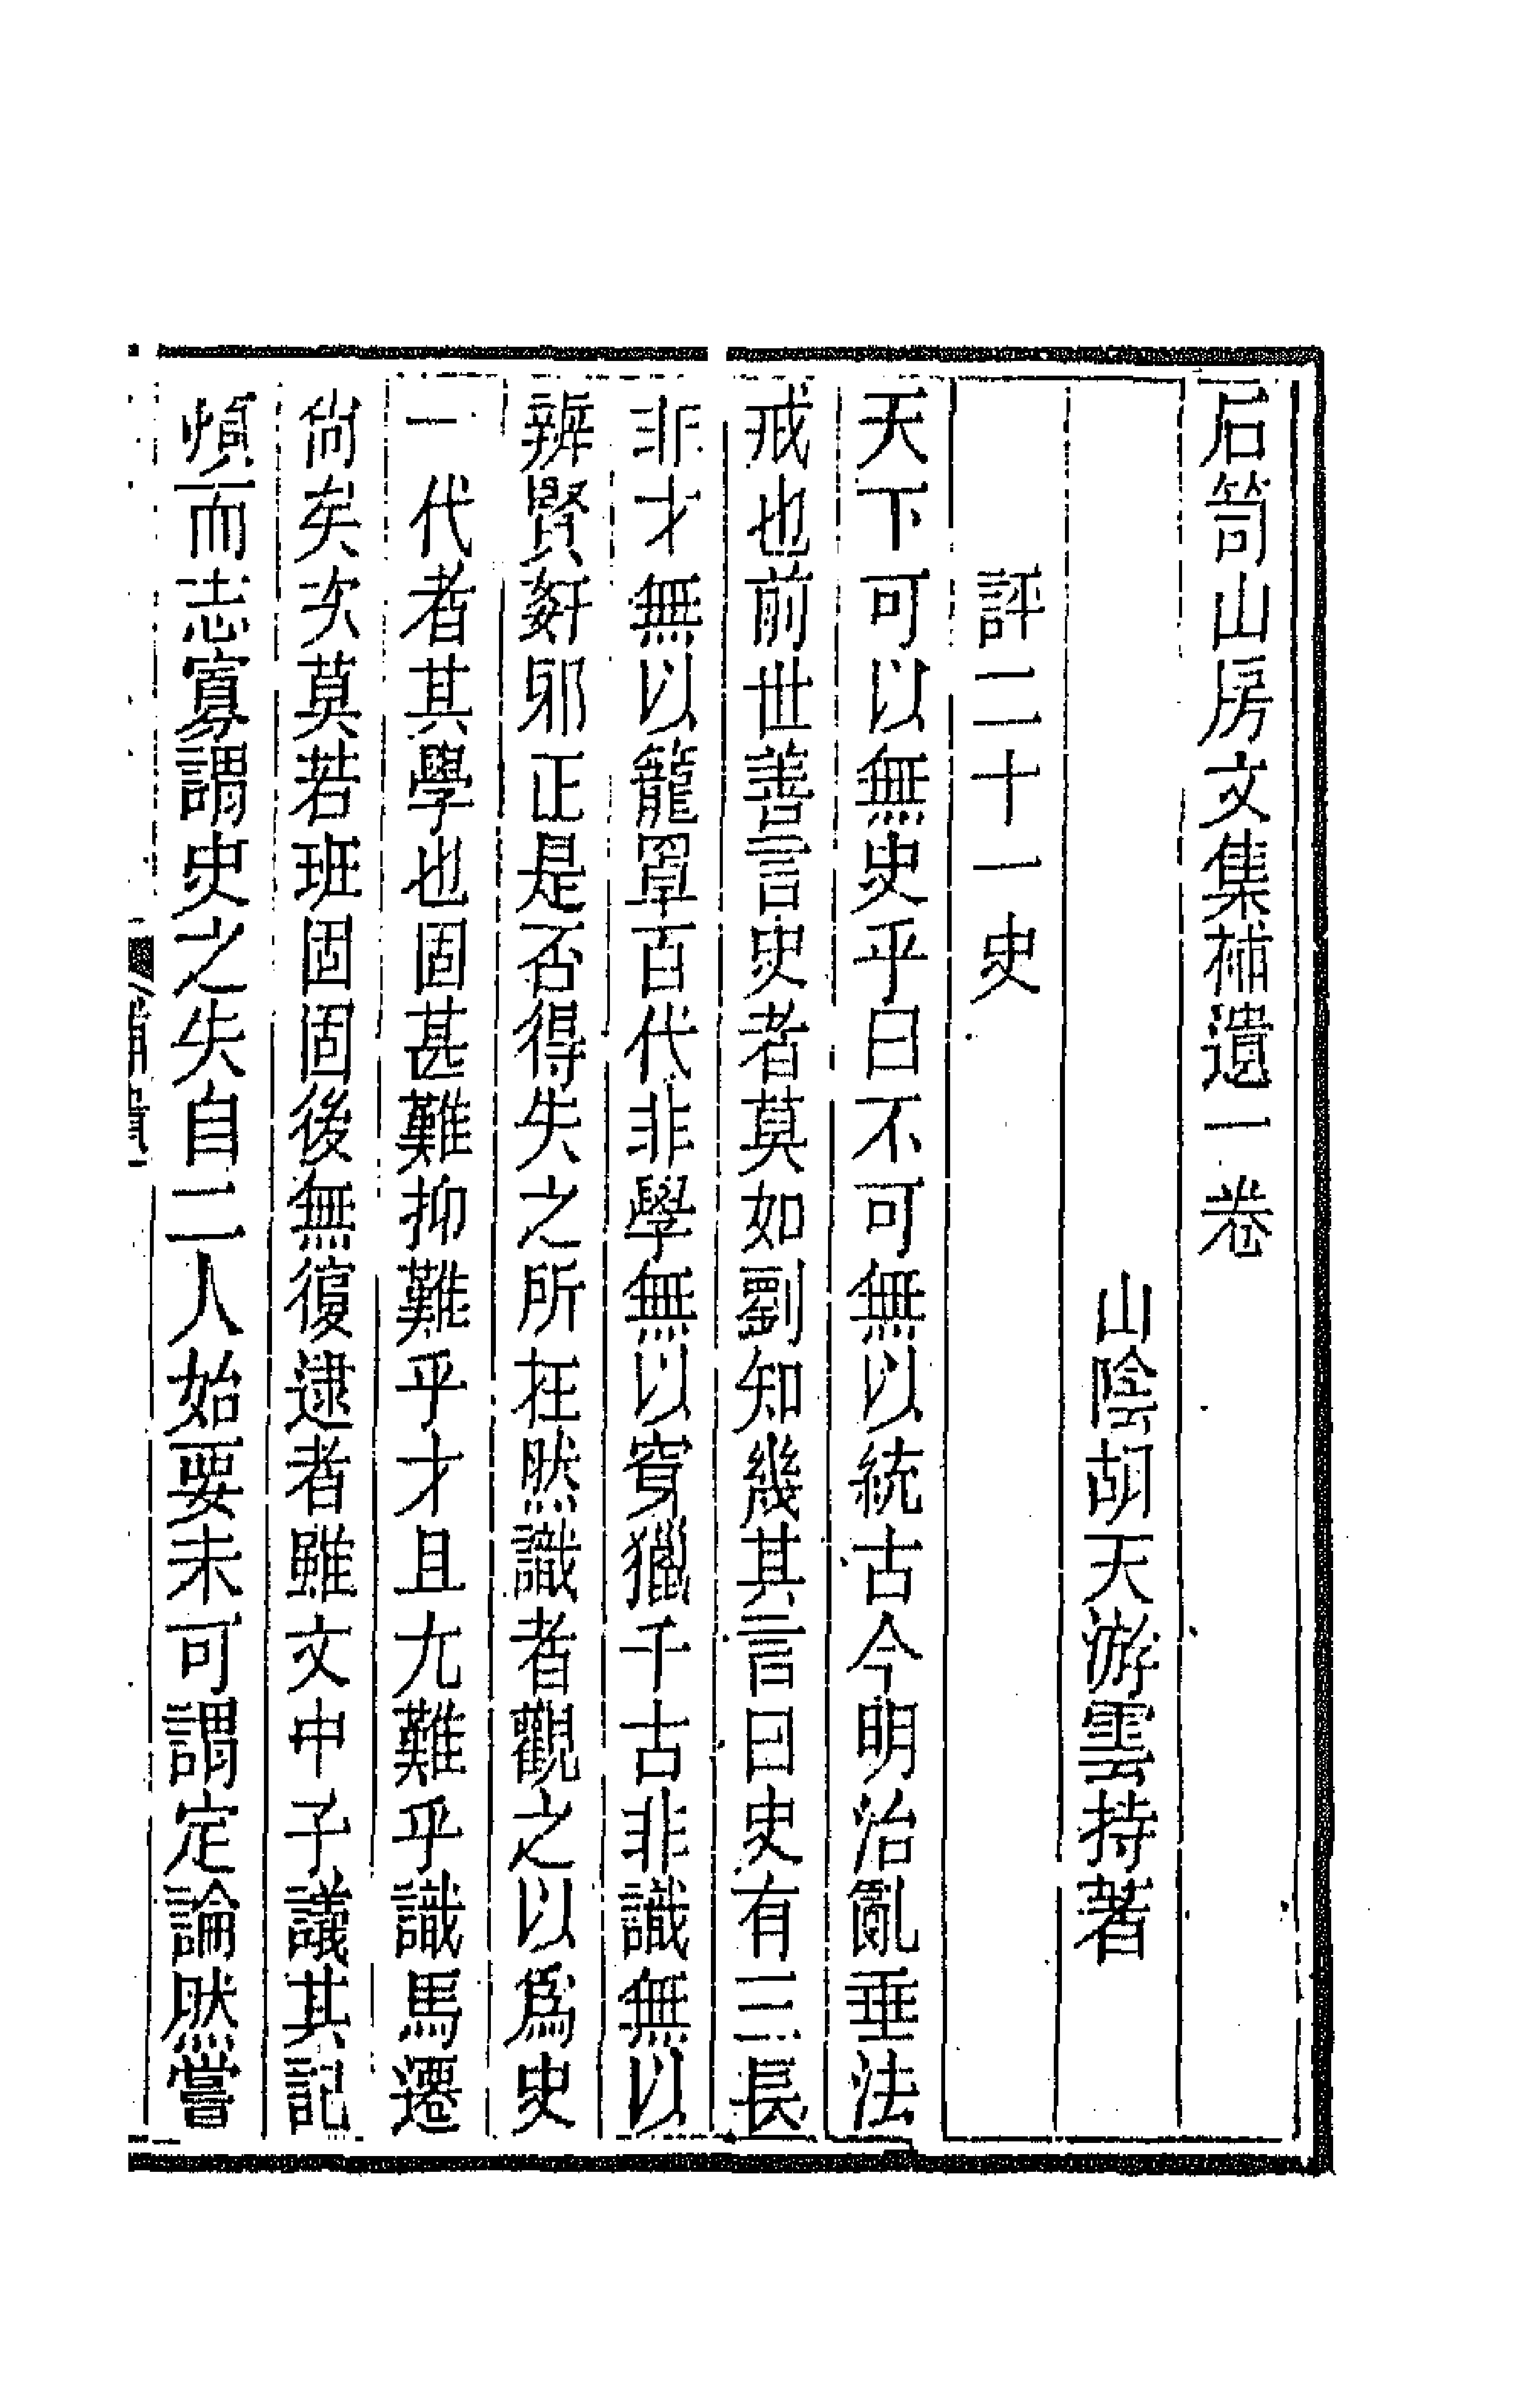 石笥山房文集補遺一卷
山陰胡天游雲持著
評二十一史
天下可以無史乎曰不可無以統古今明治亂垂法
戒也前世善言史者莫如劉知幾其言曰史有三長
非才無以籠罩百代非學無以穿獵千古非識無以
辨賢姧邪正是否得失之所在然識者觀之以爲史
一代者其學也固甚難抑難乎才且尢難乎識馬遷
尙矣次莫若班固固後無復逮者雖文中子議其記
煩而志寡謂史之失自二人始要未可謂定論然嘗